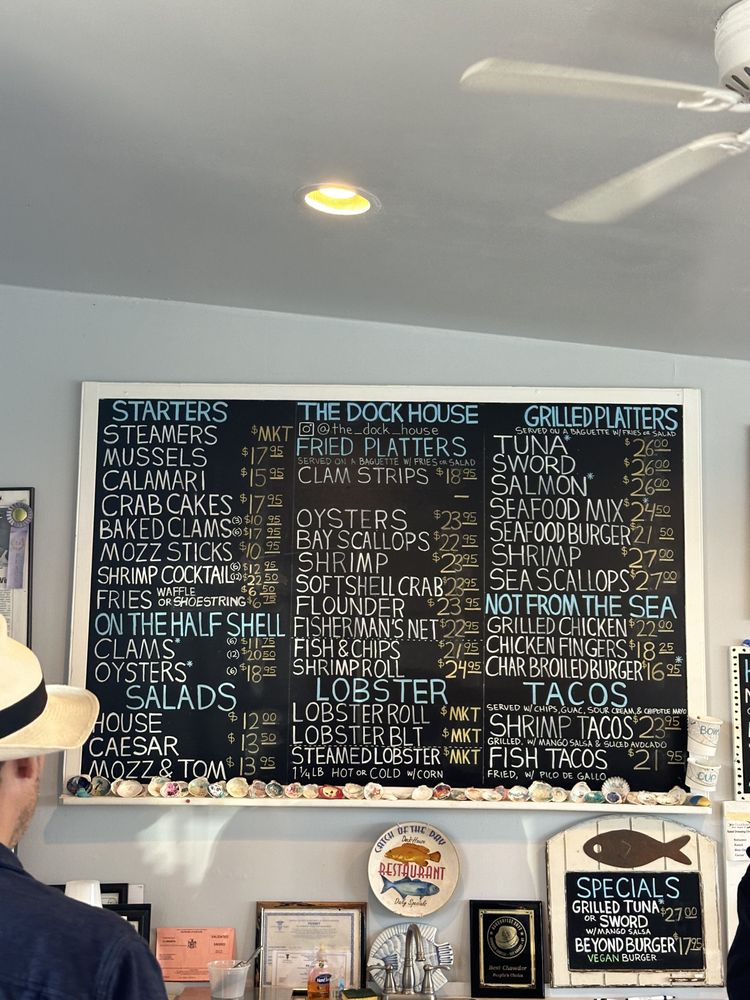 STARTERS
STEAMERS $MKT
MUSSELS $17.95
CALAMARI $15.95
CRAB CAKES $17.95
BAKED CLAMS (3) $10.95 (6) $17.95
MOZZ STICKS $10.95
SHRIMP COCKTAIL (6) $12.95 (12) $22.50
FRIES WAFFLE $6.50
OR SHOESTRING $6.75
ON THE HALF SHELL
CLAMS* (6) $11.75 (12) $20.50
OYSTERS* (6) $18.95
SALADS
HOUSE $12.00
CAESAR $13.50
MOZZ & TOM $13.50
THE DOCK HOUSE
@the_dock_house
FRIED PLATTERS
SERVED ON A BAGUETTE W/ FRIES OR SALAD
CLAM STRIPS $18.95
OYSTERS $23.95
BAY SCALLOPS $22.95
SHRIMP $23.95
SOFTSHELL CRAB $23.95
FLOUNDER $23.95
FISHERMAN'S NET $22.95
FISH & CHIPS $21.95
SHRIMP ROLL $24.95
LOBSTER
LOBSTER ROLL $MKT
LOBSTER BLT $MKT
STEAMED LOBSTER $MKT
1 1/4 LB HOT OR COLD W/CORN
GRILLED PLATTERS
SERVED ON A BAGUETTE W/ FRIES OR SALAD
TUNA* $26.00
SWORD $26.00
SALMON* $26.00
SEAFOOD MIX* $24.50
SEAFOOD BURGER $21.50
SHRIMP $27.00
SEA SCALLOPS $27.00
NOT FROM THE SEA
GRILLED CHICKEN $22.00
CHICKEN FINGERS $18.25
CHAR BROILED BURGER $16.95*
TACOS
SERVED W/ CHIPS, GUAC, SOUR CREAM, & CHIPOTLE MAYO
SHRIMP TACOS $23.95
GRILLED, W/ MANGO SALSA & SLICED AVOCADO
FISH TACOS $21.95
FRIED, W/ PICO DE GALLO
BOWL
CUP
CATCH OF THE DAY
Dock House
RESTAURANT
Daily Specials
Best Chowder
People's Choice
SPECIALS
GRILLED TUNA*
OR SWORD $27.00
W/ MANGO SALSA
BEYOND BURGER $17.95
VEGAN BURGER